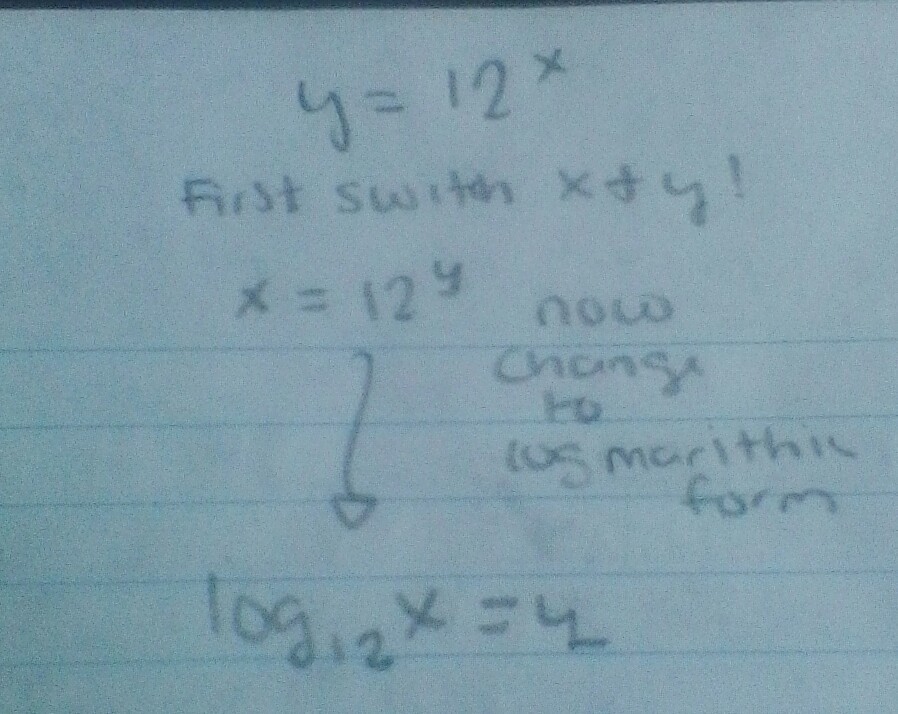 y = 12^x
First switch x + y!
x = 12^y
now
change
to
logmarithic
form
log₁₂x = y